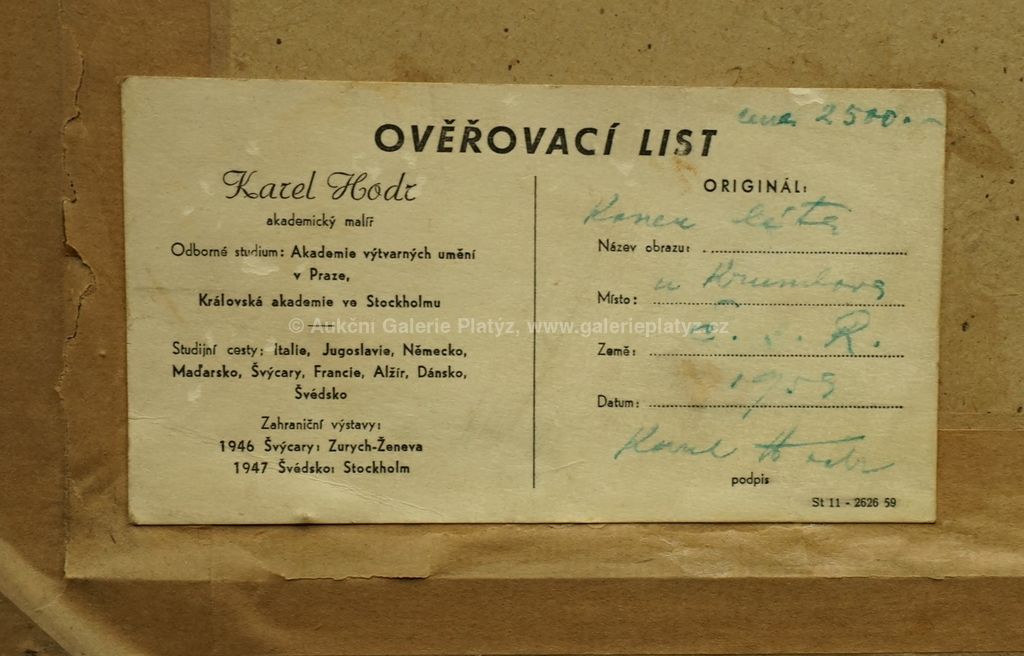 cena 2500.-
OVĚŘOVACÍ LIST
Karel Hodr
akademický malíř
Odborné studium: Akademie výtvarných umění
v Praze,
Královská akademie ve Stockholmu
Studijní cesty: Italie, Jugoslavie, Německo,
Maďarsko, Švýcary, Francie, Alžír, Dánsko,
Švédsko
Zahraniční výstavy:
1946 Švýcary: Zurych-Ženeva
1947 Švédsko: Stockholm
ORIGINÁL:
Konec léta
Název obrazu:
u Krumlova
Místo:
Č.S.R.
Země:
1959
Datum:
Karel Hodr
podpis
St 11 - 2626 59
© Aukční Galerie Platýz, www.galerieplatyz.cz